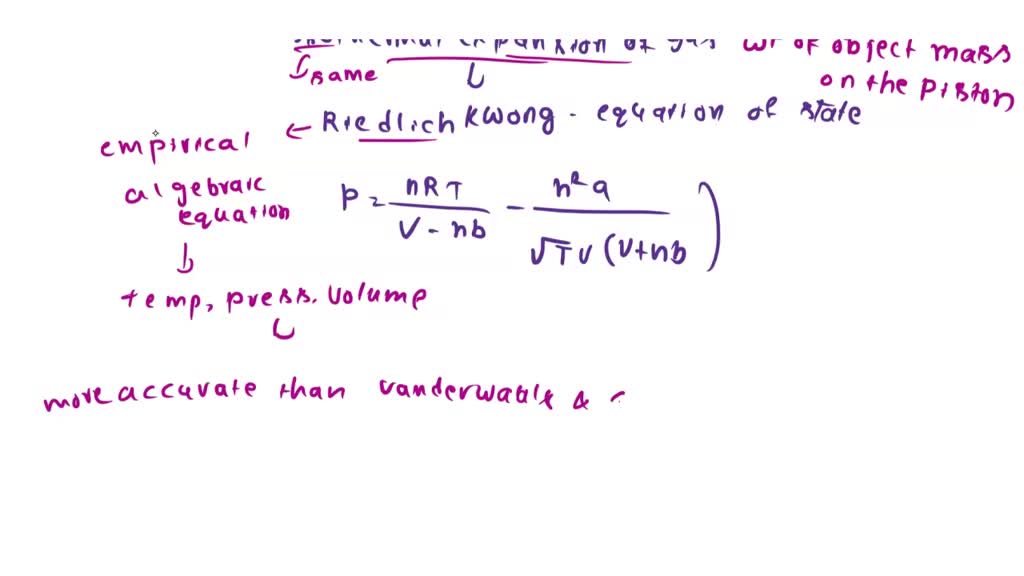 expansion of gas wt of object mass
same on the piston
← Riedlich kwong - equation of state
empirical
algebraic
equation
P = nRT / V - nb - n²a / √T v (V+nb)
temp, press. Volume
more accurate than vanderwaals &